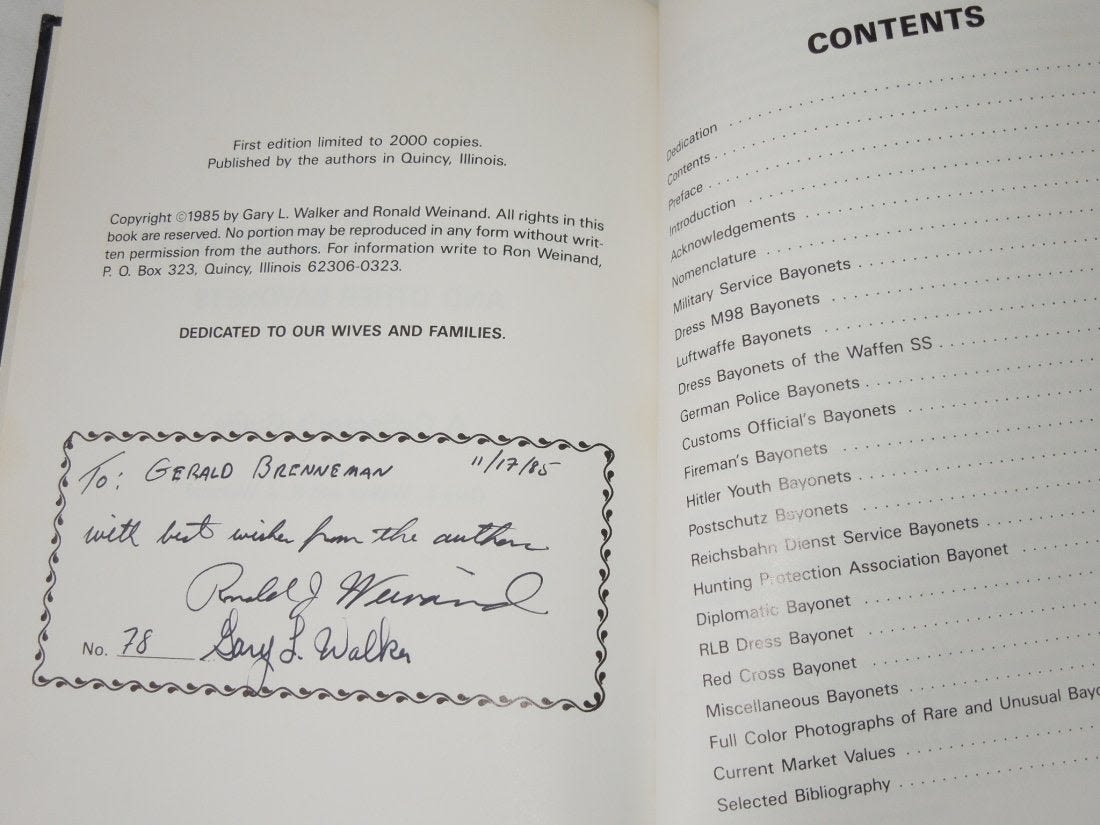 First edition limited to 2000 copies.
Published by the authors in Quincy, Illinois.
Copyright ©1985 by Gary L. Walker and Ronald Weinand. All rights in this
book are reserved. No portion may be reproduced in any form without writ-
ten permission from the authors. For information write to Ron Weinand,
P. O. Box 323, Quincy, Illinois 62306-0323.
DEDICATED TO OUR WIVES AND FAMILIES.
To: GERALD BRENNEMAN 11/17/85
with best wishes from the authors
Ronald J Weinand
No. 78 Gary L. Walker
CONTENTS
Dedication
Contents
Preface
Introduction
Acknowledgements
Nomenclature
Military Service Bayonets
Dress M98 Bayonets
Luftwaffe Bayonets
Dress Bayonets of the Waffen SS
German Police Bayonets
Customs Official's Bayonets
Fireman's Bayonets
Hitler Youth Bayonets
Postschutz Bayonets
Reichsbahn Dienst Service Bayonets
Hunting Protection Association Bayonet
Diplomatic Bayonet
RLB Dress Bayonet
Red Cross Bayonet
Miscellaneous Bayonets
Full Color Photographs of Rare and Unusual Bayo
Current Market Values
Selected Bibliography